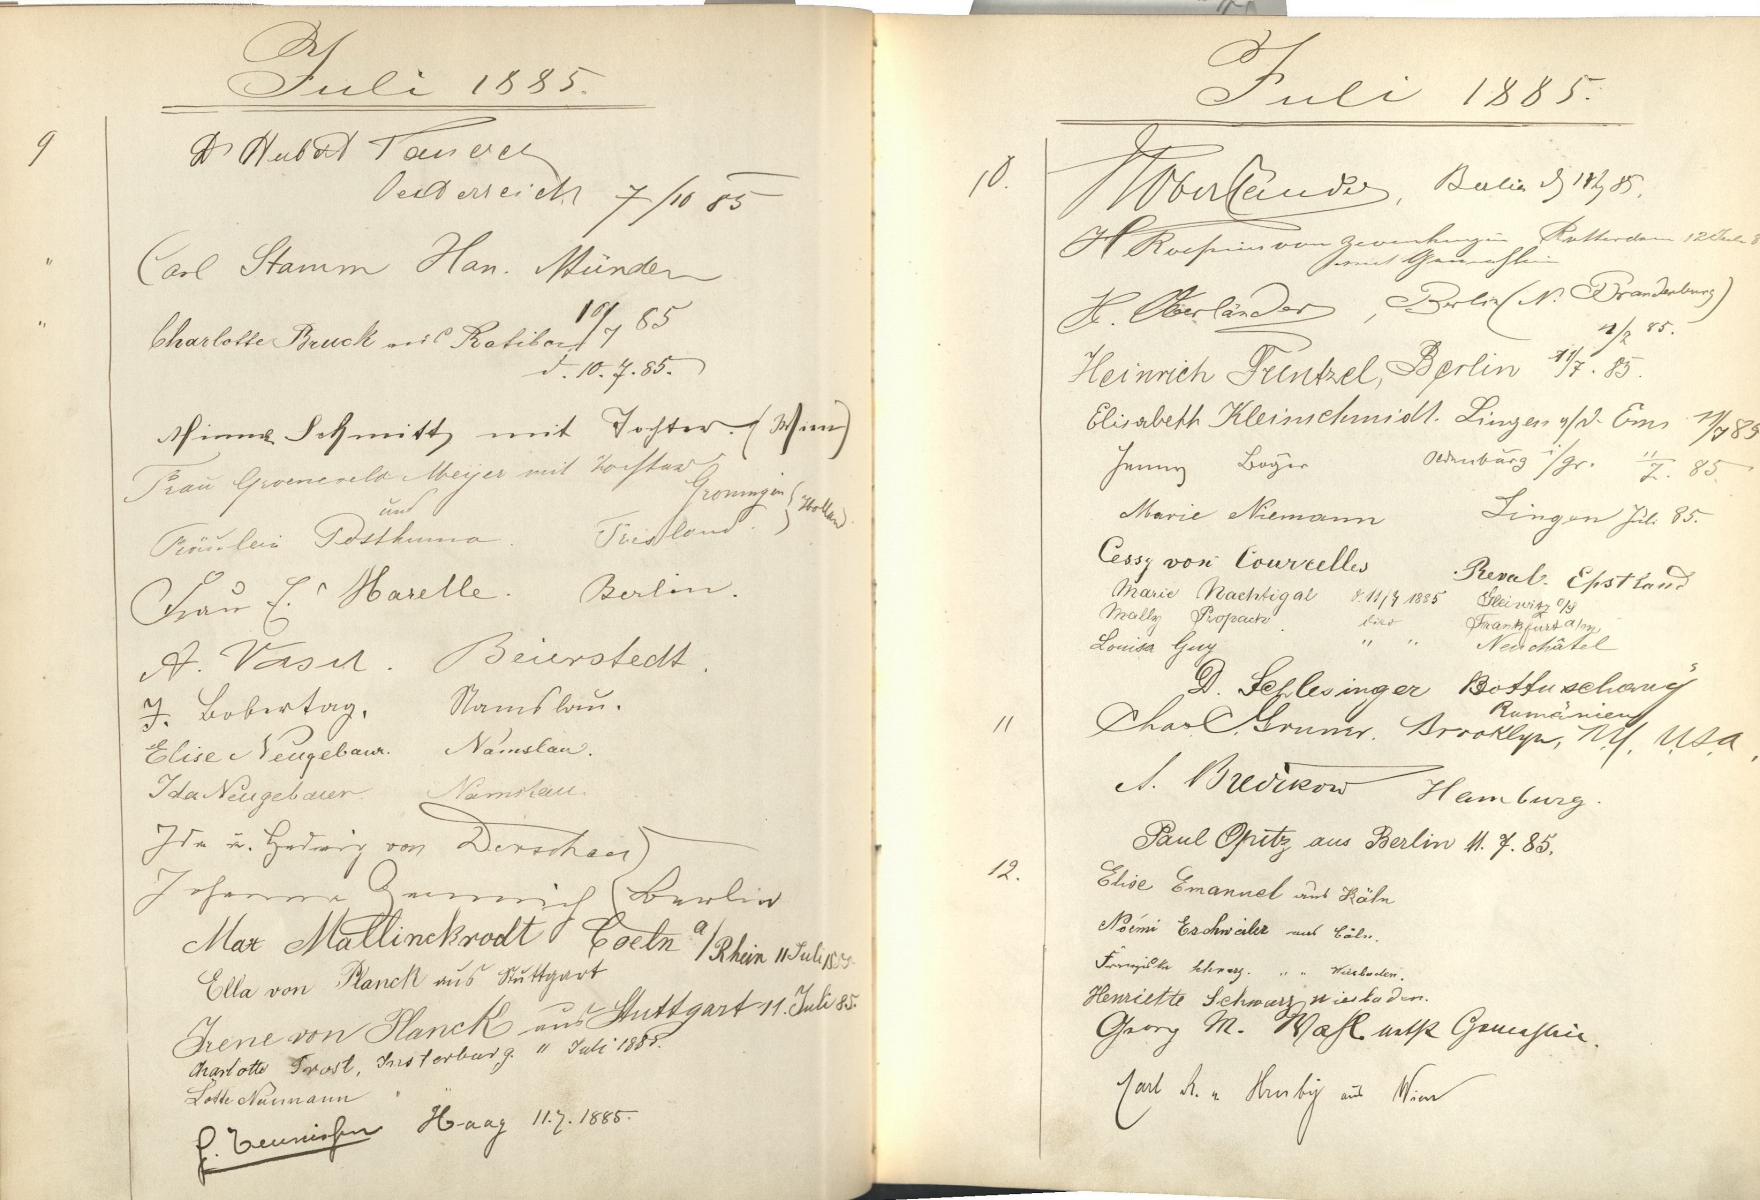 Juli 1885.
9
Dr Hubert
Oesterreich 7/10 85
" Carl Stamm Han. Münden
10/7 85
" Charlotte Bruck aus Ratibor
d. 10. 7. 85.
Minna Schmitt mit Tochter. (Wien)
Frau Groeneveld Meijer mit Tochter
Groningen
und
Holland
Fräulein Posthuma. Friesland.
Frau E. Harelle. Berlin.
A. Vasel. Beierstedt.
J. Bobertag. Namslau.
Elise Neugebaur. Namslau.
Ida Neugebauer. Namslau.
Ida u. Hedwig von Derschau
Johanna (Berlin
Max Mallinckrodt Coeln a/Rhein 11 Juli 1885
Ella von Planck aus Stuttgart
Irene von Planck aus Stuttgart 11. Juli 85.
Charlotte Frost, Insterburg. 11 Juli 1885.
Lotte Naumann "
Haag 11.7.1885.
Juli 1885.
10.
Oberländer, Berlin
H von Rotterdam 12 Juli
H. Oberländer, Berlin (N. Brandenburg)
85.
Heinrich Frentzel, Berlin 11/7. 85.
Elisabeth Kleinschmidt. Lingen a/d. Ems 11/7 85
Jenny Böger Oldenburg i/gr. 11/7. 85.
Marie Niemann Lingen Juli 85.
Cessy von Courcelles . Reval. Ehstland
Marie Nachtigal d. 11/7 1885 Gleiwitz o/s
Mally Propach dito Frankfurt a/m
Louisa Guy " " Neuchâtel
D. Schlesinger Bottuschany
Rumänien
11 Chas C. Gruner. Brooklyn, N.Y. U.S.A.
A. Bredikow Hamburg.
Paul Opitz aus Berlin 11. 7. 85.
12.
Elise Emanuel aus Köln
Noémi Eschweiler aus Cöln.
Franziska Schwarz. " " Wiesbaden.
Henriette Schwarz Wiesbaden.
Georg M. Wahl nebst Gemahlin.
Carl aus Wien